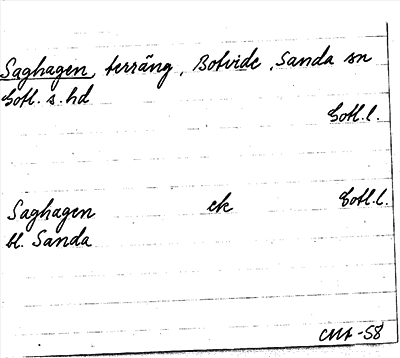 Saghagen, terräng, Botvide, Sanda sn
Gotl. s. hd
Gotl. l.
Saghagen ek Gotl. l.
bl. Sanda
-58